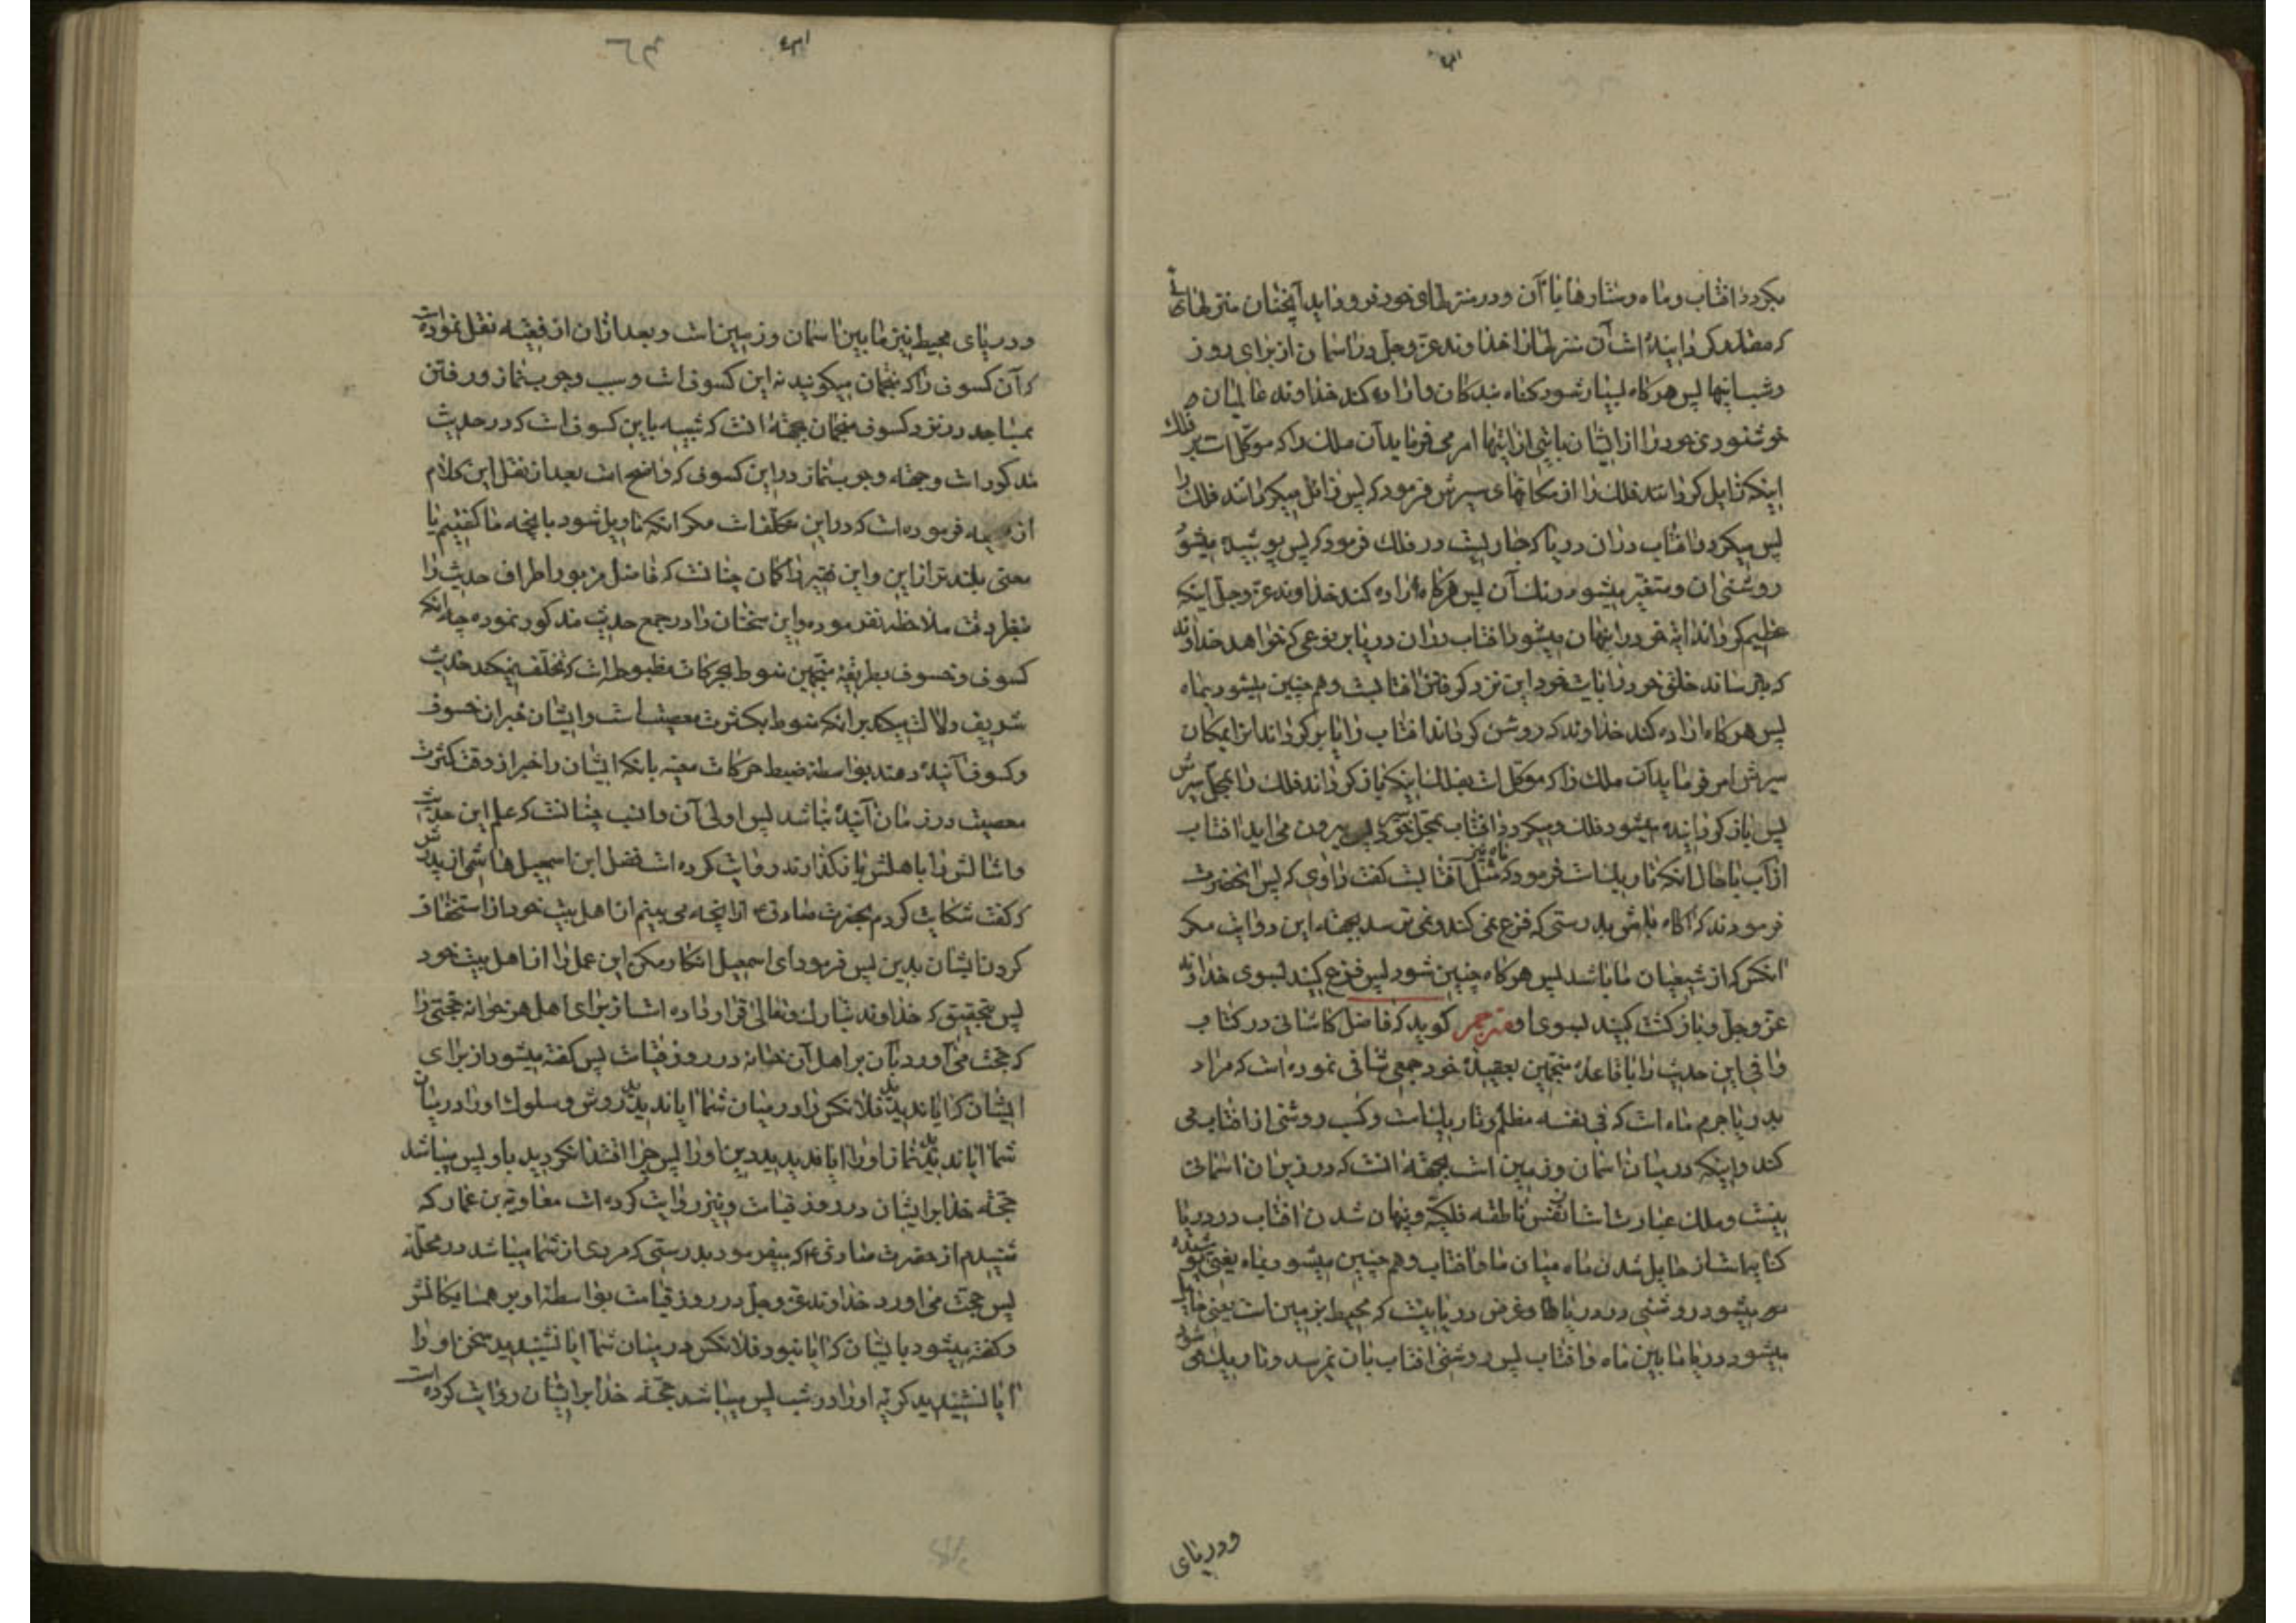 میکردد افتاب و ماه و ستارها با آن و در منزلهای خود فرو د اید آنچنان منزلهائی
که مقدر کردانیده است آن منزلها را خداوند عز و جل در اسمان از برای روز
و شب انها پس هرکاه بسیار شود کناه بندکان و اراده کند خداوند عالمیان
خوشنودی خود را از ایشان بایتی از ایتها امر می فرماید آن ملک را که موکل است بر فلک
اینکه زایل کرداند فلک را از مکانهای سیرش فرمود که پس زائل میکرداند فلک را
پس میکردد افتاب در ان دریا که جاریست در فلک فرمود که پس پوشیده میشود
روشنی ان و متغیر میشود رنک آن پس هرکاه اراده کند خداوند عز و جل اینکه
عظیم کرداند ایه خود را پنهان میشود افتاب در ان دریا بر نوعی که خواهد خداوند
که بترساند خلق خود را بایت خود این نزد کرفتن افتابست و هم چنین میشود بماه
پس هرکاه اراده کند خداوند که روشن کرداند افتاب را یا برکرداند انرا بمکان
سیرش امر فرماید آن ملک را که موکل است بفلک اینکه باز کرداند فلک را بمحل سیرش
پس باز کردانیده میشود فلک و میکردد افتاب بمحل خود پس بیرون می اید افتاب
از آب با حال انکه تاریکست فرمود که ماه نیز مثل آفتابست کفت راوی که پس انحضرت
فرمودند که آکاه باش بدرستی که فزع نمی کند و نمی ترسد بجهة این دو ایت مکر
انکس که از شیعیان ما باشد پس هرکاه چنین شود پس فزع کنید بسوی خداوند
عز و جل و باز کشت کنید بسوی او مترجم کوید که فاضل کاشانی در کتاب
وافی این حدیث را با قاعدهٔ منجمین بعقیدهٔ خود جمعی شافی نموده است که مراد
بدریا جرم ماه است که فی نفسه مظلم و تاریکست و کسب روشنی از افتاب می
کند و اینکه در میان اسمان و زمین است بجهة انست که در زیر ان اسمانی
نیست و ملک عبارت است از نفس ناطقه فلکیه و پنهان شدن افتاب در دریا
کنایه است از حایل شدن ماه میان ما و افتاب و هم چنین میشود بماه یعنی پوشیده
میشود روشنی در دریاها و غرض دریائیست که محیط بزمین است یعنی حایل
میشود دریا ما بین ماه و افتاب پس روشنی افتاب بان نمیرسد و تاریک میشود
ودریای
و دریای محیط نیز ما بین اسمان و زمین است و بعد از ان از فقیه نقل نموده است
که آن کسوف را که منجمان میکویند نه این کسوف است و سبب وجوب نماز و رفتن
بمساجد در نزد کسوف منجمان بجهة انست که شبیه باین کسوف است که در حدیث
مذکور است و جهة وجوب نماز در این کسوف که واضح است بعد از نقل این کلام
از فقیه فرموده است که در این تکلف است مکر انکه تاویل شود بانچه ما کفتیم یا
معنی بلندتر از این و این فقیر را کمان چنانست که فاضل مزبور اطراف حدیث را
بنظر دقت ملاحظه نفرموده و این سخنان را در جمع حدیث مذکور نموده چه انکه
کسوف و خسوف بطریقهٔ منجمین منوط بحرکات مظبوطه است که تخلف نمیکند و حدیث
شریف دلالت میکند بر انکه منوط بکثرت معصیت است و ایشان خبر از خسوف
و کسوف آینده دهند بواسطهٔ ضبط حرکات معینه با انکه ایشان را خبر از وقت کثرت
معصیت در زمان آینده نباشد پس اولی آن و انسب چنانست که علم این حدیث
و امثالش را باهلش باز کذارند روایت کرده است فضل ابن اسمعیل هاشمی از پدرش
که کفت شکایت کردم بحضرت صادق ع از انچه می بینم از اهل بیت خود از استخفاف
کردن ایشان بدین پس فرمود ای اسمعیل انکار مکن این عمل را از اهل بیت خود
پس بتحقیق که خداوند تبارک و تعالی قرار داده است از برای اهل هر خوانه حجتی را
که حجت می آورد بآن بر اهل آن خانه در روز قیامت پس کفته میشود از برای
ایشان که ایا ندیدید فلانکس را در میان شما ایا ندیدید روش و سلوک او را در میان
شما ایا ندیدید نماز او را ایا ندیدید دین او را پس چرا اقتدا نکردید باو پس میباشد
حجة خدا بر ایشان در روز قیامت و نیز روایت کرده است معاویة بن عمار که
شنیدم از حضرت صادق ع که میفرمود بدرستی که مردی از شما میباشد در محله
پس حجت می اورد خداوند عز و جل در روز قیامت بواسطهٔ او بر همسایکانش
و کفته میشود بایشان که ایا نبود فلانکس در میان شما ایا نشنیدید سخن او را
ایا نشنیدید کریه او را در شب پس میباشد حجة خدا بر ایشان روایت کرده است